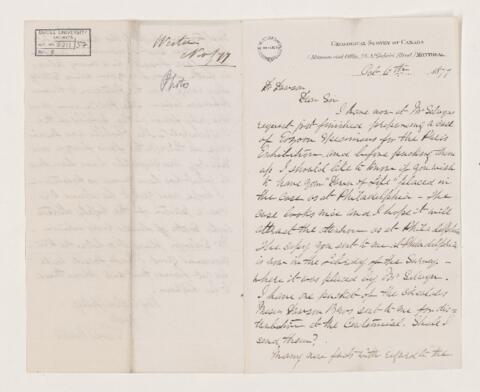 McGILL UNIVERSITY
ARCHIVES
ACC. NO. 2211/57
REF. 8
Weston
Nov/77
Photos
GEOLOGICAL SURVEY OF CANADA
Museum and Office, 76 St Gabriel Street, MONTREAL
Oct 6th 1877
Dr Dawson
Dear Sir
I have now at Mr Selwyns
request just finished preparing a case
of Eozoon Specimens for the Paris
Exhibition and before packing them
up I should like to know if you wish
to have your "Dawn of Life" placed in
the case as at Philadelphia - The
case looks nice and I hope it will
attract the attention as at Philadelphia
The copy you sent to me at Philadelphia
is now in the library of the Survey. -
where it was placed by Mr Selwyn.
I have one packet of the circulars
Messrs Dawson Bros sent to me for dis-
tribution at the Centennial. Shall I
send them?
Many new facts with regard to the